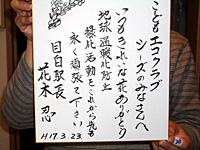 こどもエコクラブ
シーズのみなさんへ
いつもきれいな花ありがとう
地球温暖化防止
緑化活動をこれからも
永く頑張て下さい
目白駅長
花木 忍
H19.3.23